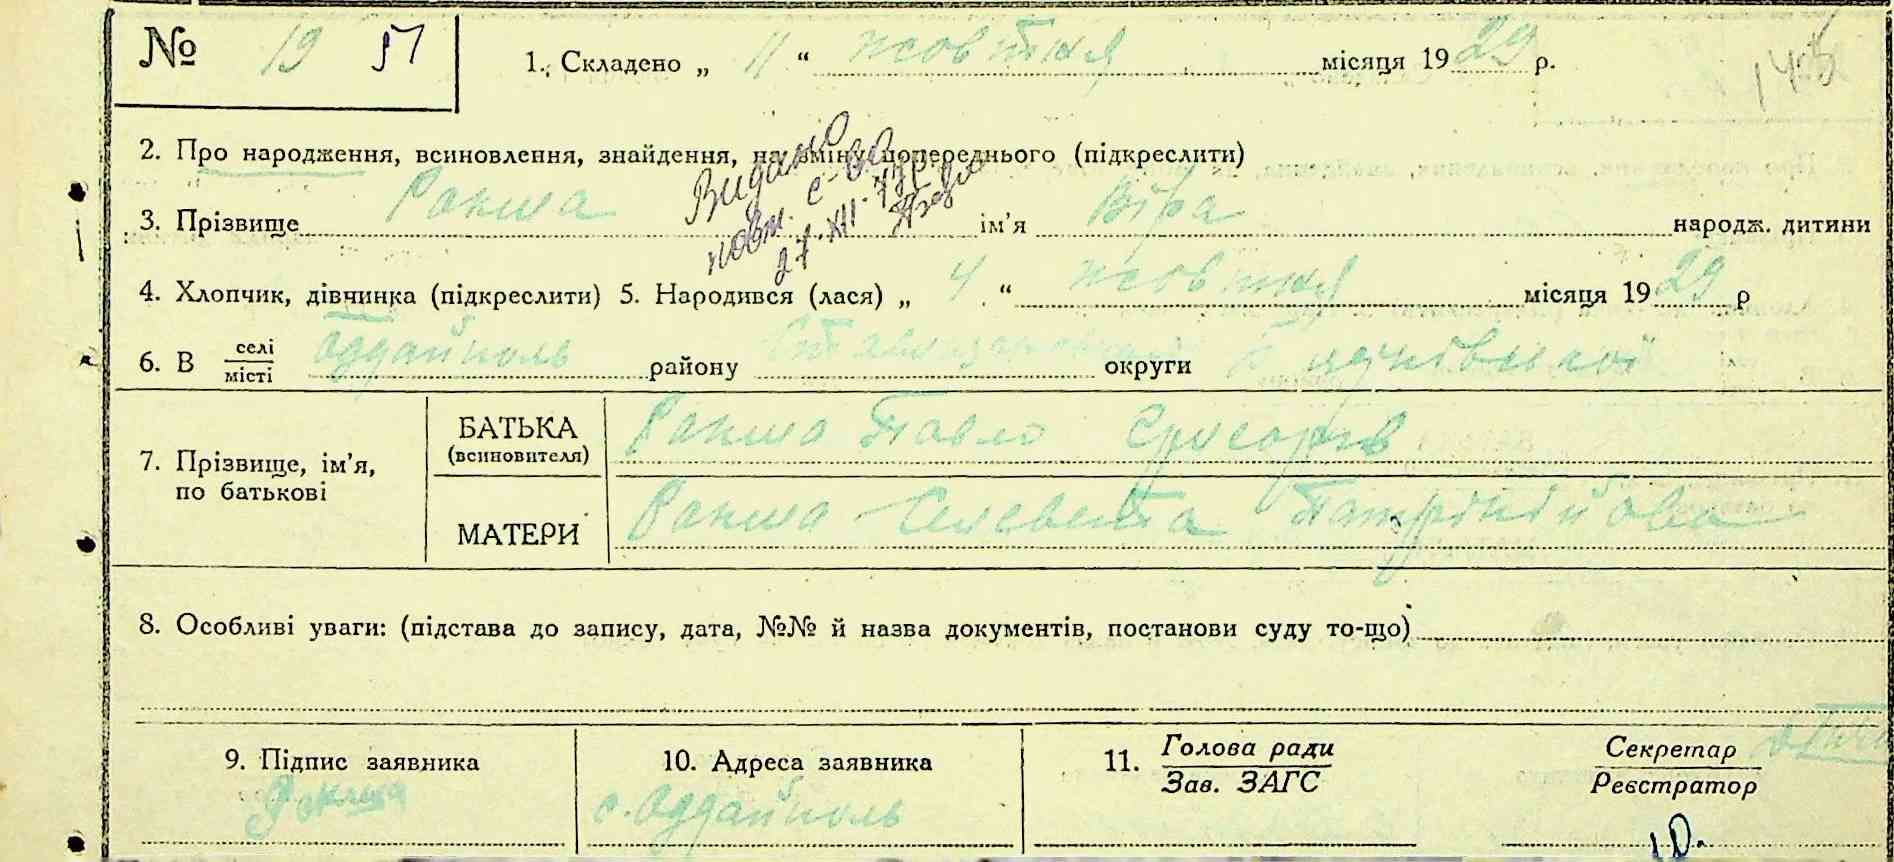 № 19 1. Складено „ 11 “ жовтня місяця 19 29 р. 145
2. Про народження, всиновлення, знайдення, на зміну попереднього (підкреслити)
Видано
повт. с-во
27.XII.77р.
3. Прізвище Рокша ім'я Віра народж. дитини
4. Хлопчик, дівчинка (підкреслити) 5. Народився (лася) „ 4 “ жовтня місяця 19 29 р
6. В селі
місті Оддайполь району округи
7. Прізвище, ім'я,
по батькові
БАТЬКА
(всиновителя)
Рокша Павло
МАТЕРИ
Рокша
8. Особливі уваги: (підстава до запису, дата, №№ й назва документів, постанови суду то-що)
9. Підпис заявника
Рокша
10. Адреса заявника
с. Оддайполь
11. Голова ради
Зав. ЗАГС
Секретар
Реєстратор